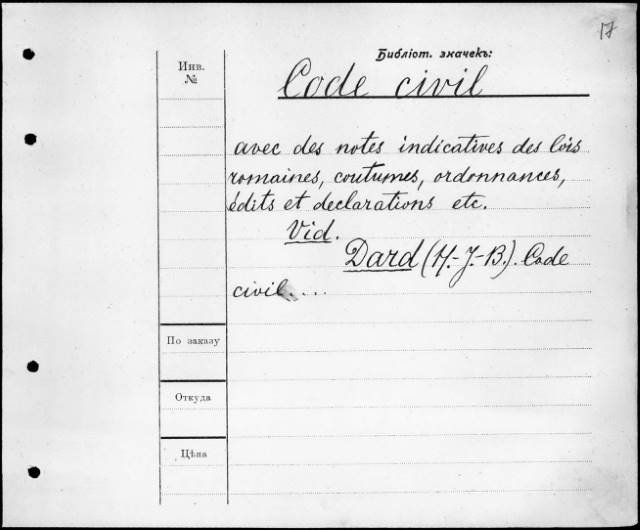 17
Библіот. значекъ:
Инв.
№
Code civil
avec des notes indicatives des lois
romaines, coutumes, ordonnances,
édits et declarations etc.
Vid.
Dard (H.-J.-B.). Code
civil....
По заказу
Откуда
Цѣна